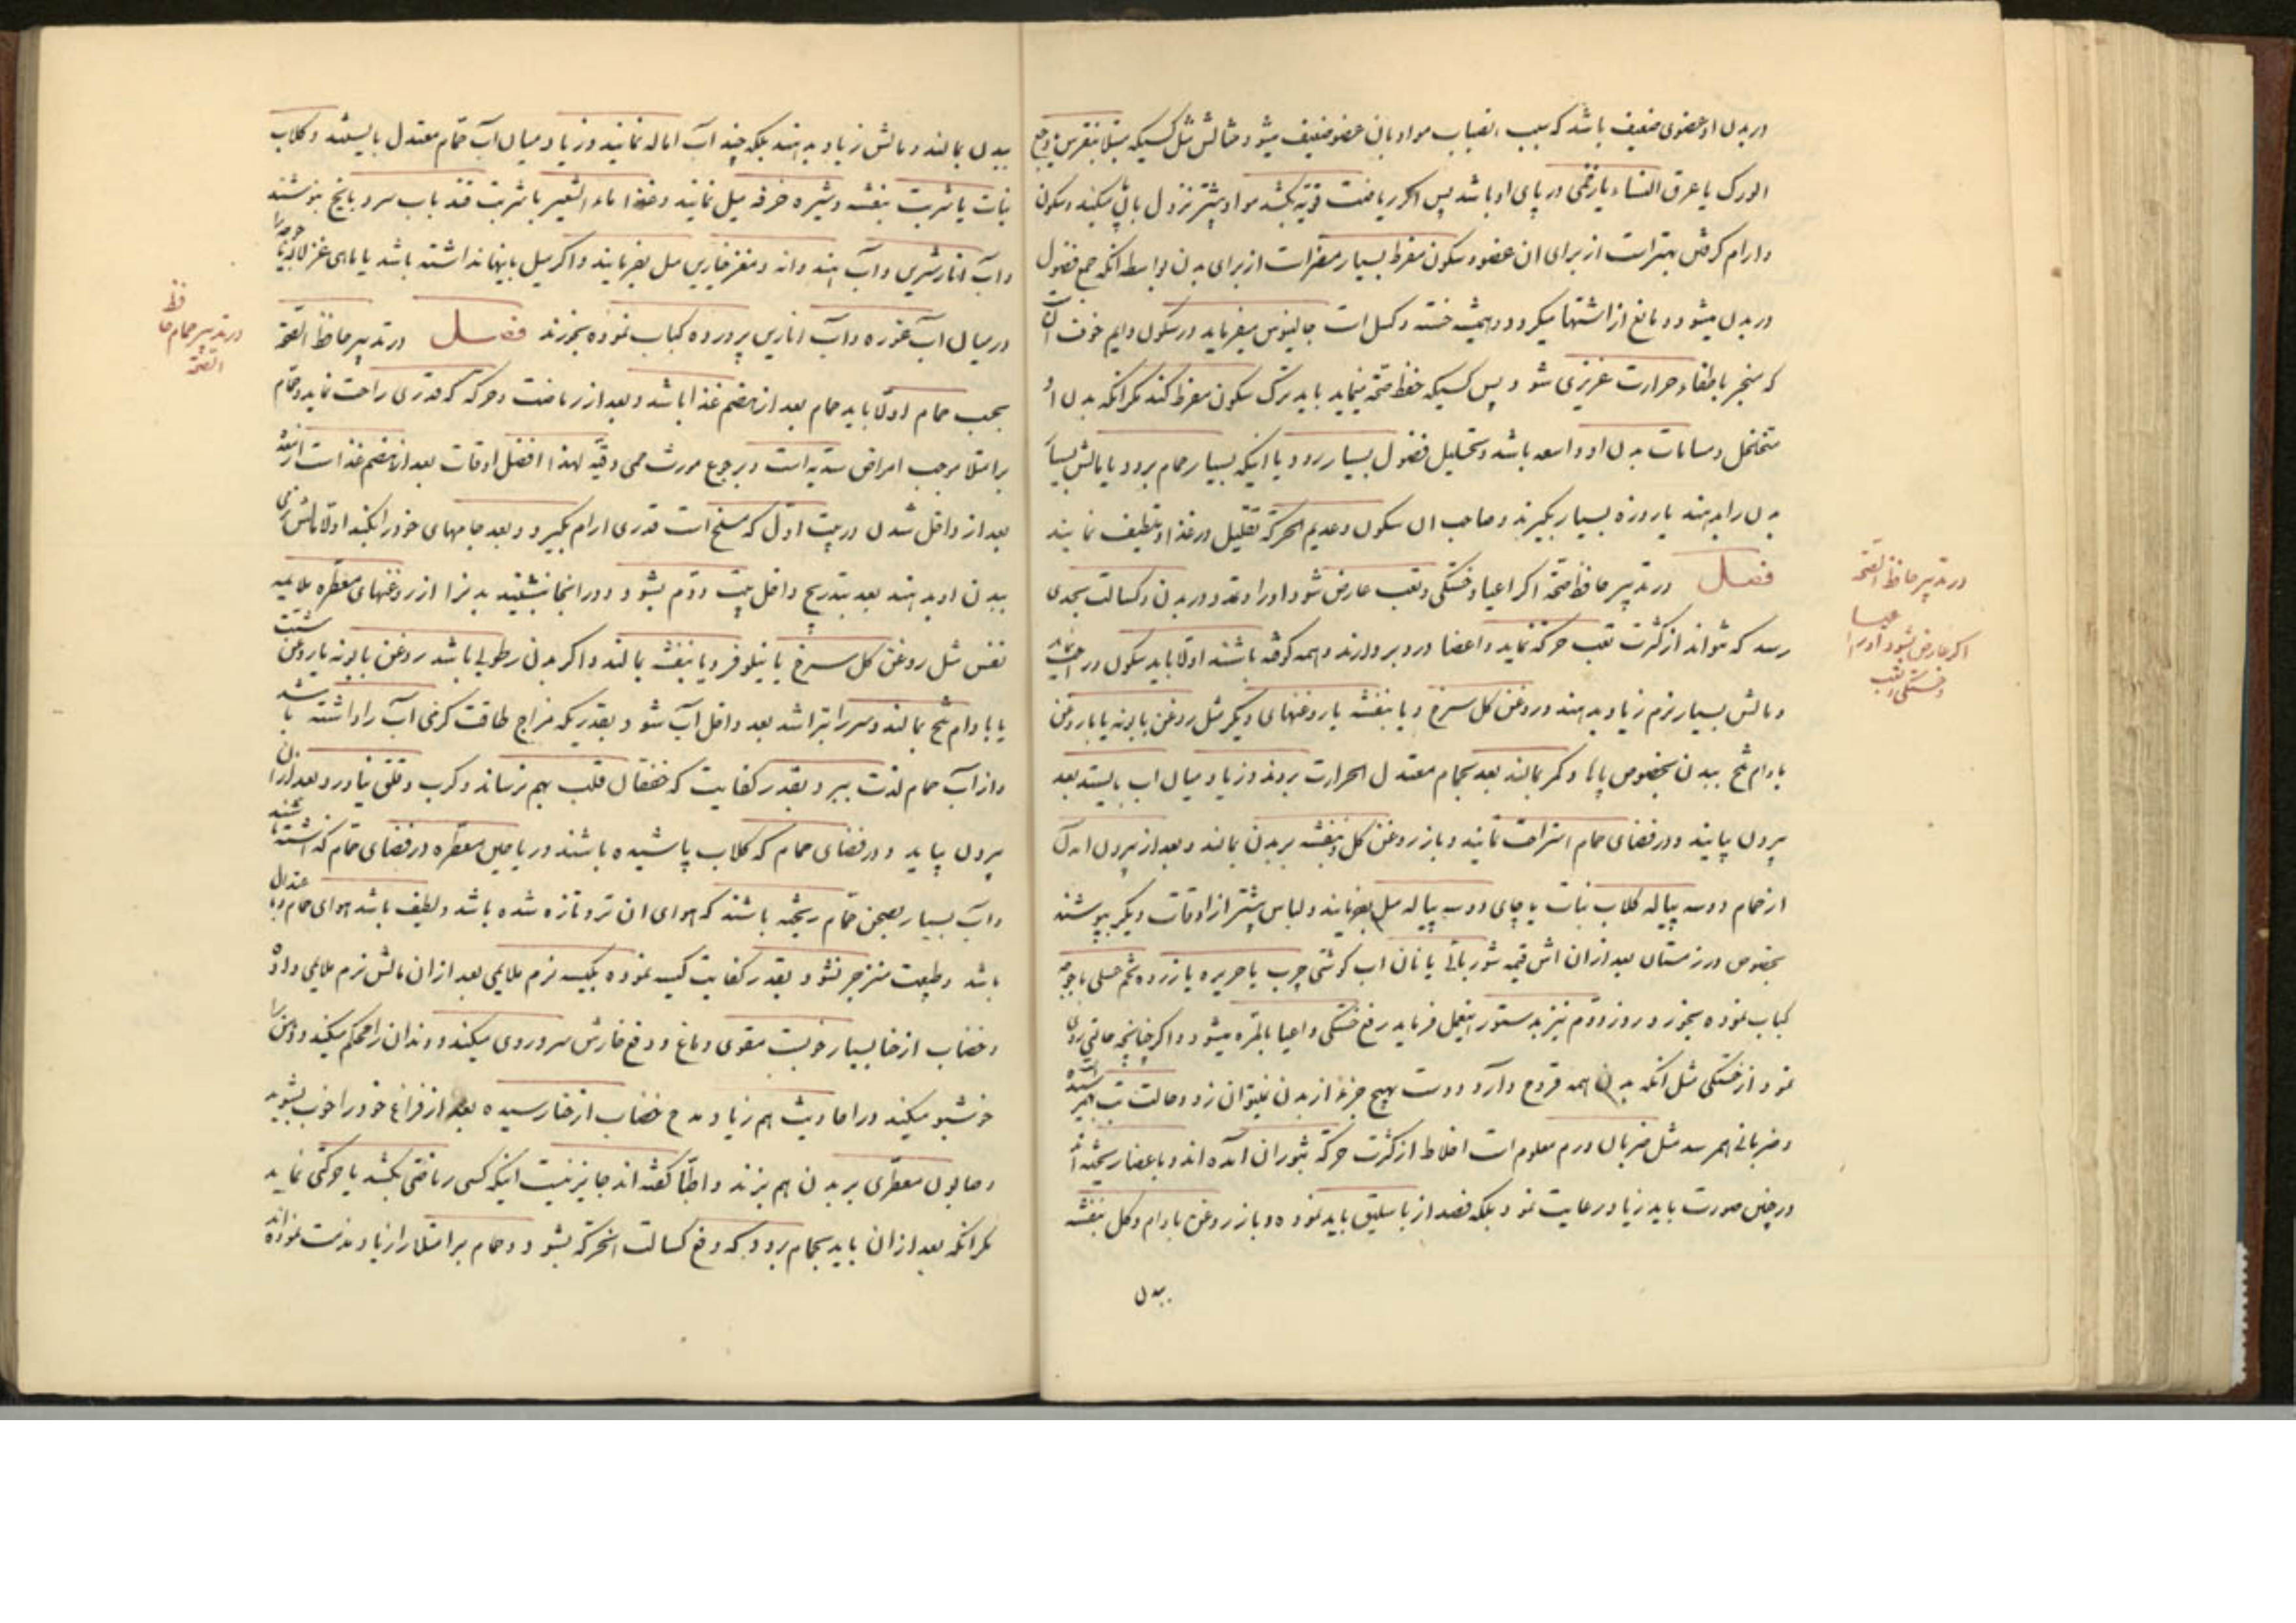 در بدن او عضوی ضعیف باشد که بسبب انصباب مواد بان عضو ضعیف میشود مثالش مثل کسیکه مبتلا بنقرس و وجع
الورک یا عرق النساء یا زخمی در پای او باشد پس اکر ریاضت قویه بکشد مواد بیشتر نزول بان میکند و سکون
و ارام کرفتن بهتر است از برای ان عضو و سکون مفرط بسیار مضر است از برای بدن بواسطه انکه جمع فضول
در بدن میشود و مانع از اشتها میکردد و همیشه خسته و کسل است جالینوس میفرماید در سکون دایم خوف ان
که منجر باطفاء حرارت غریزی شود پس کسیکه حفظ صحة مینماید باید ترک سکون مفرط کند مکر انکه بدن او
متخلخل و مسامات بدن او واسعه باشد و تحلیل فضول بسیار رود یا اینکه بسیار حمام برود یا مالش بسیار
بدن را بدهند یا روزه بسیار بکیرند و صاحب ان سکون و عدیم الحرکة تقلیل در غذا و تنظیف نمایند
فصل در تدبیر حافظ صحة اکر اعیا و خستکی و تعب عارض شود او را و تمدد در بدن و کسالت بحدی
رسد که نتواند از کثرت تعب حرکة نماید و اعضا درد بر دارند و همه کوفته باشند اولا باید سکون و راحت نماید
و مالش بسیار نرم زیاد بدهند و روغن کل سرخ و یا بنفشه یا روغنهای دیکر مثل روغن بابونه یا با روغن
بادام تلخ ببدن بخصوص پاها و کمر بمالند بعد بحمام معتدل الحرارت بروند و زیاد میان اب بایستند بعد
بیرون بیایند و در فضای حمام استراحت نمایند و باز روغن کل و بنفشه بر بدن بمالند و بعد از بیرون امدن
از حمام دو سه پیاله کلاب نبات یا چای دو سه پیاله میل بفرمایند و لباس بیشتر از اوقات دیکر بپوشند
بخصوص در زمستان بعد از ان اش قیمه شوربائی یا نان اب کوشتی چرب یا حریره یا زرده تخم عسلی یا جوجه
کباب نموده بخورد و روز دوم نیز بدستور اینعمل فرماید رفع خستکی و اعیا بالمره میشود و اکر چنانچه حالتی روی
نمود از خستکی مثل انکه بدن همه قروح دارد و دست بهیچ جزء از بدن نمیتوان زد و حالت تب بهمرسیده
و ضربانی بهمرسد مثل ضربان ورم معلوم است اخلاط از کثرت حرکة بثوران آمده اند و باعضا ریخته اند
در چنین صورت باید زیاد رعایت نمود بلکه فصد از باسلیق باید نموده و باز روغن بادام و کل بنفشه
ببدن
در تدبیر حافظ الصحة
اکر عارض بشود او را
اعیا
و خستکی و تعب
ببدن بمالند و مالش زیاد بدهند بلکه چند آب اماله نمایند و زیاد میان آب حمام معتدل بایستند و کلاب
نبات یا شربت بنفشه و شیره خرفه میل نمایند و غذا ماء الشعیر با شربت قند باب سرد و با یخ بنوشند
و آب انار شیرین و آب هندوانه و مغز خیارین میل بفرمایند و اکر میل باینها نداشته باشد یا ماهی قزل الا
در میان آب غوره و آب انارین پرورده کباب نموده بخورند فصل در تدبیر حافظ الصحة
بحسب حمام اولا باید حمام بعد از هضم غذا باشد و بعد از ریاضت و حرکه که قدری راحت نماید و حمام
بر امتلا موجب امراض سدیه است و بر جوع مورث حمی دقیه لهذا افضل اوقات بعد از هضم غذا است از معده
بعد از داخل شدن در بیت اول که مسلخ است قدری ارام بکیرد و بعد جامهای خود را بکند اولا مالش نرمی
ببدن او بدهند بعد بتدریج داخل بیت دوم بشود و در انجا بنشیند بدن را از روغنهای معطره ملایمه
نفس مثل روغن کل سرخ یا نیلوفر و یا بنفشه بمالند و اکر بدن رطوبی باشد روغن بابونه یا روغن شبت
یا بادام تلخ بمالند و سر را بتراشد بعد داخل آب شود بقدریکه مزاج طاقت کرمی آب را داشته باشد
و از آب حمام لذت ببرد بقدر کفایت که خفقان قلب بهم نرساند و کرب و قلق نیاورد و بعد از ان
بیرون بیاید و در فضای حمام که کلاب پاشیده باشند و ریاحین معطره در فضای حمام کذاشته باشند
و آب بسیار بصحن حمام ریخته باشند که هوای ان تر و تازه شده باشد و لطیف باشد هوای حمام و باعتدال
باشد و طبیعت منزجر نشود بقدر کفایت کیسه نموده بکیسه نرم ملایمی بعد از ان مالش نرم ملایمی داده
و خضاب از حنا بسیار خوبست مقوی دماغ و دفع خارش سر و روی میکند و دندان را محکم میکند و دهن را
خوشبو میکند و در احادیث هم زیاد مدح خضاب از حنا رسیده بعد از فراغ خود را خوب بشوید
و صابون معطری بر بدن هم بزند و اطبا کفته اند جایز نیست اینکه کسی ریاضتی بکشد یا حرکتی نماید
مکر انکه بعد از ان باید بحمام برود که دفع کسالت انحرکه بشود و حمام بر امتلا را زیاد مذمت نموده اند
در تدبیر حمام حافظ
الصحة